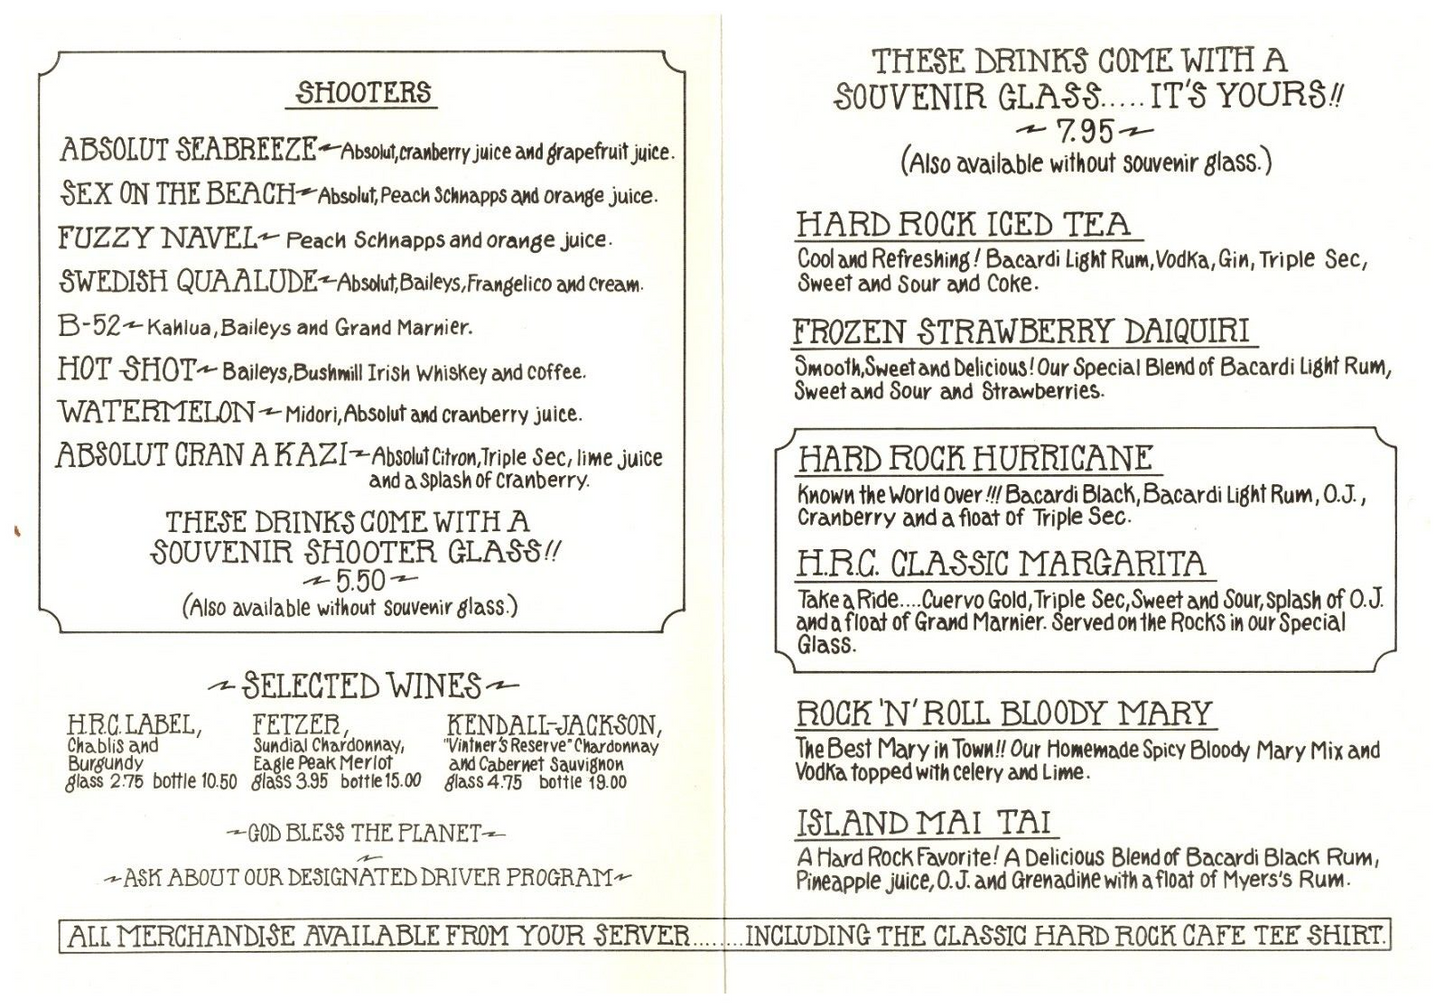 SHOOTERS
ABSOLUT SEABREEZE~Absolut,cranberry juice and grapefruit juice.
SEX ON THE BEACH~Absolut,Peach Schnapps and orange juice.
FUZZY NAVEL~Peach Schnapps and orange juice.
SWEDISH QUAALUDE~Absolut,Baileys,Frangelico and cream.
B-52~Kahlua,Baileys and Grand Marnier.
HOT SHOT~Baileys,Bushmill Irish Whiskey and coffee.
WATERMELON~Midori,Absolut and cranberry juice.
ABSOLUT CRAN A KAZI~Absolut Citron,Triple Sec, lime juice
and a splash of cranberry.
THESE DRINKS COME WITH A
SOUVENIR SHOOTER GLASS!!
~5.50~
(Also available without souvenir glass.)
~SELECTED WINES~
H.R.C. LABEL,
Chablis and
Burgundy
glass 2.75 bottle 10.50
FETZER,
Sundial Chardonnay,
Eagle Peak Merlot
glass 3.95 bottle 15.00
KENDALL-JACKSON,
"Vintner's Reserve" Chardonnay
and Cabernet Sauvignon
glass 4.75 bottle 19.00
~GOD BLESS THE PLANET~
~ASK ABOUT OUR DESIGNATED DRIVER PROGRAM~
THESE DRINKS COME WITH A
SOUVENIR GLASS.....IT'S YOURS!!
~7.95~
(Also available without souvenir glass.)
HARD ROCK ICED TEA
Cool and Refreshing! Bacardi Light Rum,Vodka,Gin,Triple Sec,
Sweet and Sour and Coke.
FROZEN STRAWBERRY DAIQUIRI
Smooth,Sweet and Delicious! Our Special Blend of Bacardi Light Rum,
Sweet and Sour and Strawberries.
HARD ROCK HURRICANE
Known the World Over!!! Bacardi Black,Bacardi Light Rum,O.J.,
Cranberry and a float of Triple Sec.
H.R.C. CLASSIC MARGARITA
Take a Ride....Cuervo Gold,Triple Sec,Sweet and Sour,splash of O.J.
and a float of Grand Marnier. Served on the Rocks in our Special
Glass.
ROCK 'N' ROLL BLOODY MARY
The Best Mary in Town!! Our Homemade Spicy Bloody Mary Mix and
Vodka topped with celery and Lime.
ISLAND MAI TAI
A Hard Rock Favorite! A Delicious Blend of Bacardi Black Rum,
Pineapple juice,O.J. and Grenadine with a float of Myers's Rum.
ALL MERCHANDISE AVAILABLE FROM YOUR SERVER.......INCLUDING THE CLASSIC HARD ROCK CAFE TEE SHIRT.